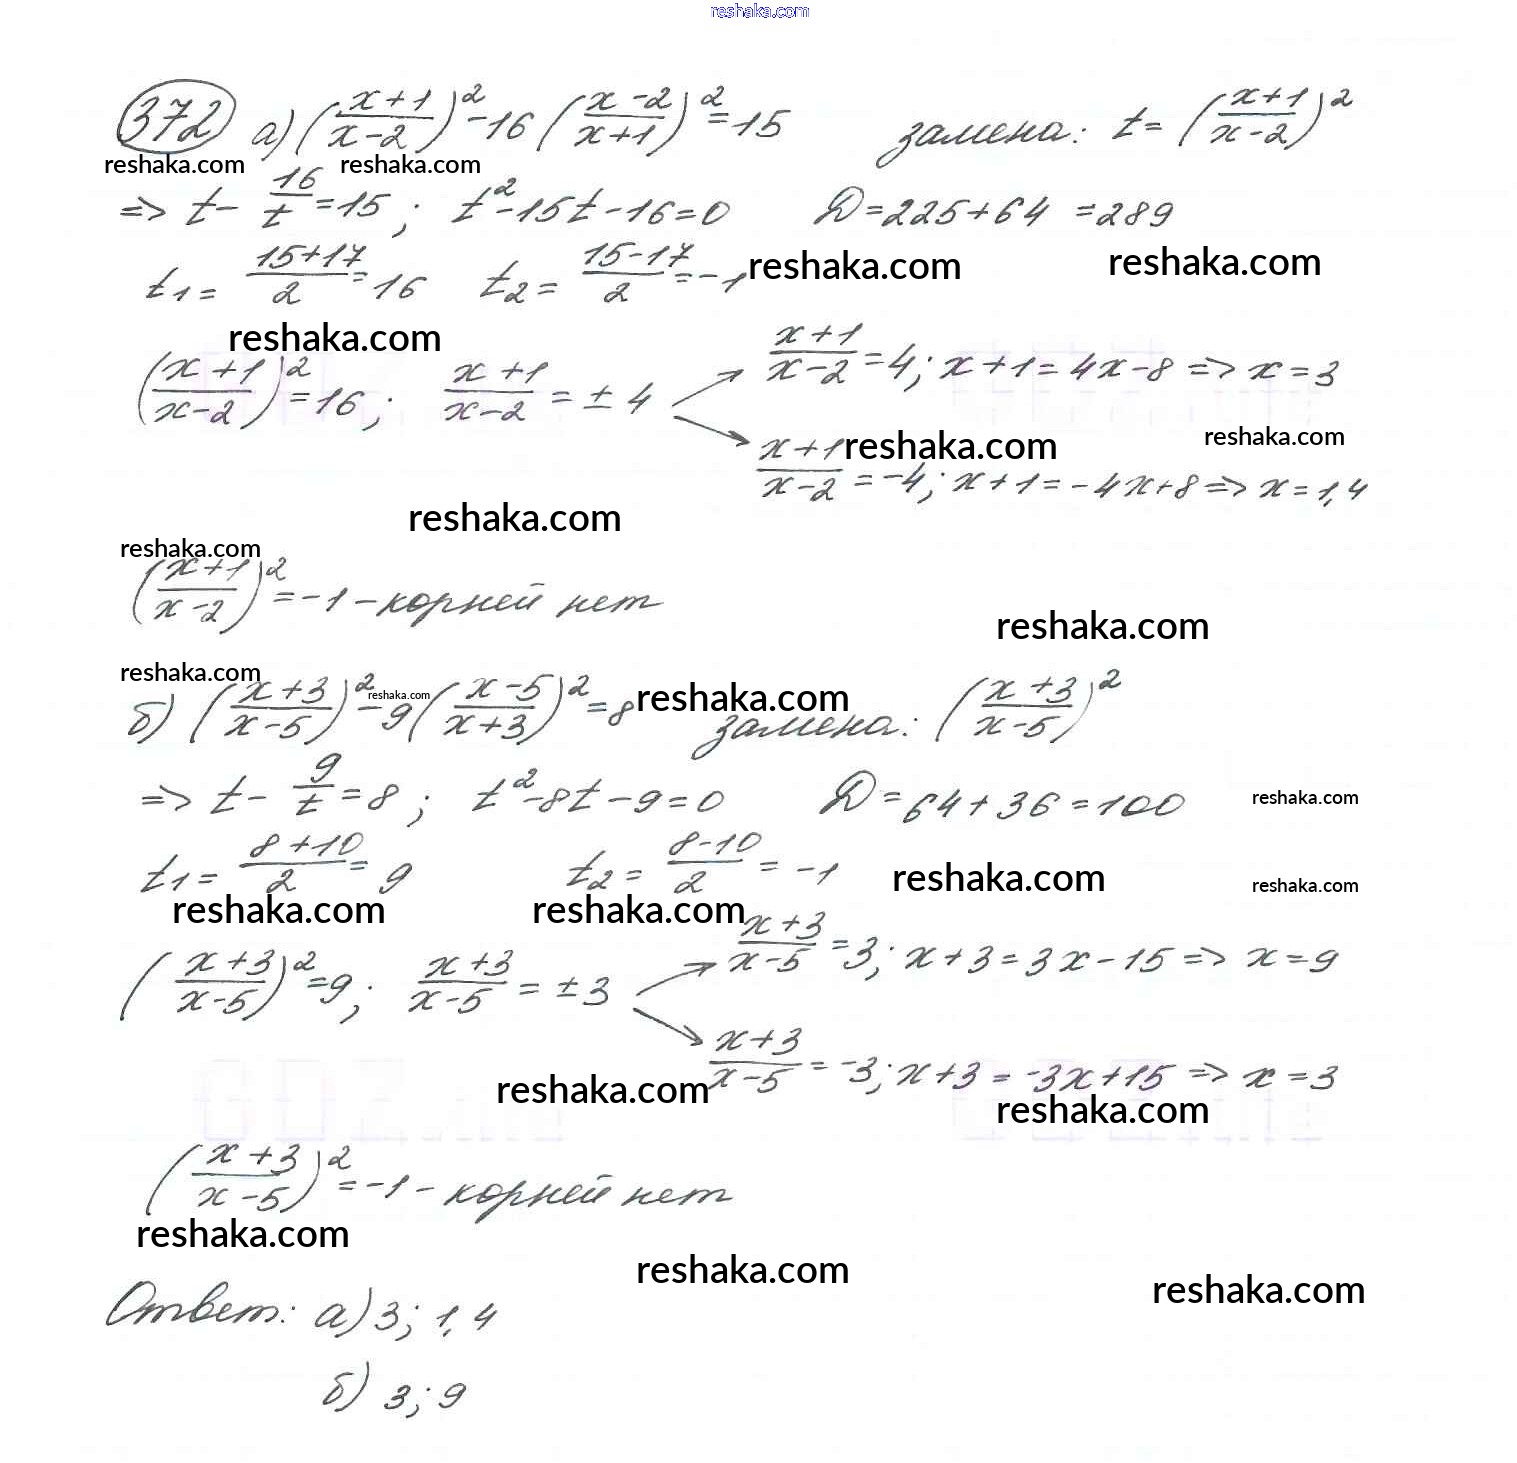 reshaka.com
372 а) ((x+1)/(x-2))² - 16 ((x-2)/(x+1))² = 15 замена: t = ((x+1)/(x-2))²
reshaka.com reshaka.com
=> t - 16/t = 15; t² - 15t - 16 = 0 D = 225 + 64 = 289
t₁ = (15+17)/2 = 16 t₂ = (15-17)/2 = -1 reshaka.com reshaka.com
reshaka.com
((x+1)/(x-2))² = 16; (x+1)/(x-2) = ± 4 (x+1)/(x-2) = 4; x+1 = 4x-8 => x = 3
reshaka.com reshaka.com
(x+1)/(x-2) = -4; x+1 = -4x+8 => x = 1,4
reshaka.com
reshaka.com
((x+1)/(x-2))² = -1 - корней нет
reshaka.com
reshaka.com
б) ((x+3)/(x-5))² - 9((x-5)/(x+3))² = 8 замена: ((x+3)/(x-5))²
reshaka.com reshaka.com
=> t - 9/t = 8; t² - 8t - 9 = 0 D = 64 + 36 = 100
reshaka.com
t₁ = (8+10)/2 = 9 t₂ = (8-10)/2 = -1 reshaka.com reshaka.com
reshaka.com reshaka.com
((x+3)/(x-5))² = 9; (x+3)/(x-5) = ± 3 (x+3)/(x-5) = 3; x+3 = 3x-15 => x = 9
(x+3)/(x-5) = -3; x+3 = -3x+15 => x = 3
reshaka.com reshaka.com
((x+3)/(x-5))² = -1 - корней нет
reshaka.com
reshaka.com reshaka.com
Ответ: а) 3; 1,4
б) 3; 9